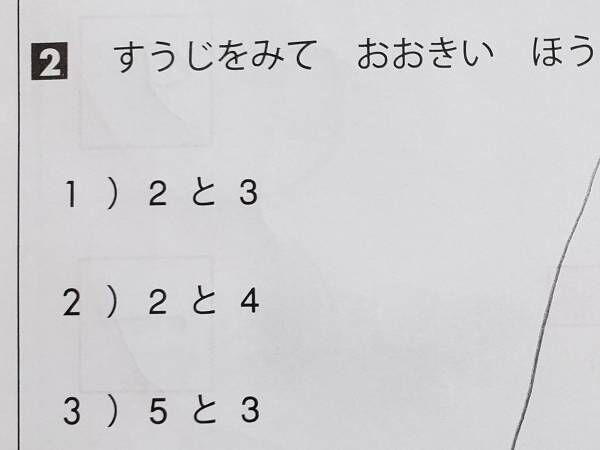 2 すうじをみて おおきい ほう
1）2 と 3
2）2 と 4
3）5 と 3